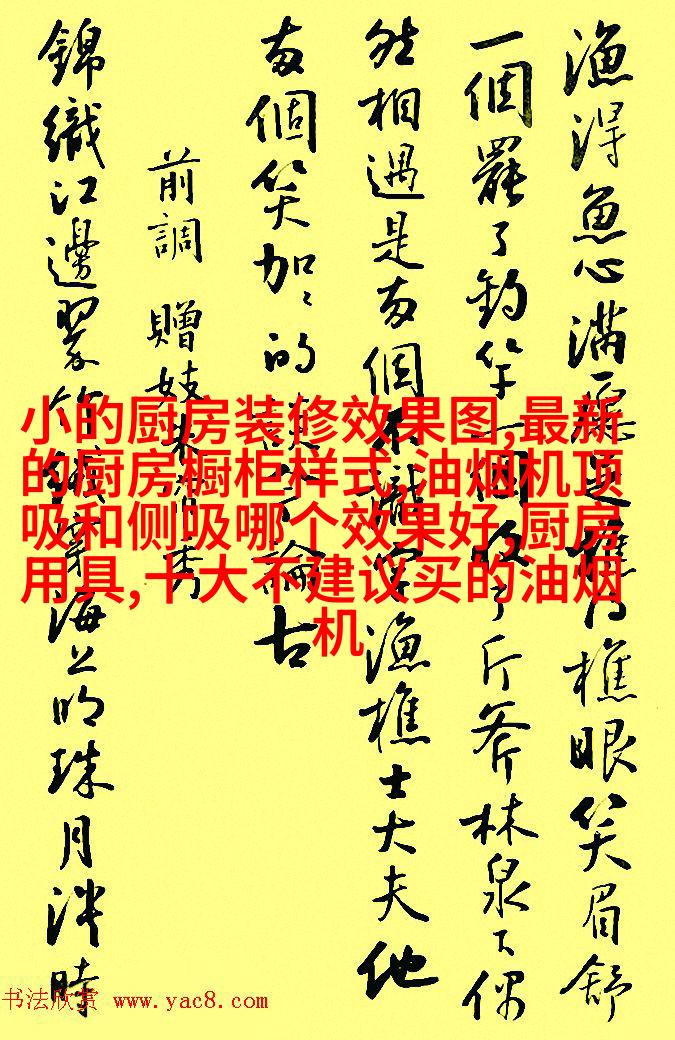 漁得魚心滿願足樵得樵眼笑眉舒
一個罷了釣竿一個收了斤斧林泉下偶
然相遇是兩個不識字漁樵士大夫他
兩個笑加加的談今論古
前調 贈妓朱簾秀
錦織江邊翠竹絨穿海上明珠月淡時
小的厨房装修效果图,最新
的厨房橱柜样式,油烟机顶
吸和侧吸哪个效果好,厨房
用具,十大不建议买的油烟
机
书法欣赏 www.yac8.com